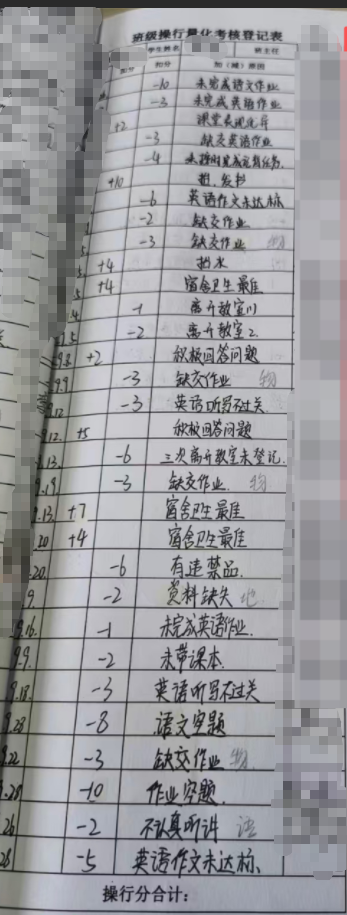 班级操行量化考核登记表
学生姓名 班主任
加分 扣分 加（减）原因
-10 未完成语文作业
-3 未完成英语作业
+2 课堂表现优异
-3 缺交英语作业
-4
+10
-6 英语作文未达标
-2 缺交作业
-3 缺交作业 物
+4 抬水
+4 宿舍卫生最佳
-1 离开教室1
-2 离开教室2.
9.8. +2 积极回答问题
9.9 -3 缺交作业 物
9.12 -3 英语听写不过关.
9.12. +5 积极回答问题
9.13. -6 三次离开教室未登记.
9.19 -3 缺交作业. 物
9.13. +7 宿舍卫生最佳
.20 +4 宿舍卫生最佳
.20. -6 有违禁品.
9. -2 资料缺失 地
9.16. -1 未完成英语作业.
9.9. -2 未带课本.
9.18. -3 英语听写不过关
9.28 -8 语文空题
9.22 -3 缺交作业 物.
9.28 -10 作业空题.
26 -2 不认真听讲 语
28 -5 英语作文未达标.
操行分合计：